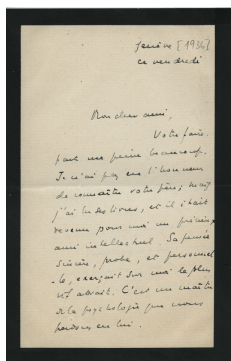 Genève [1934]
ce vendredi
Mon cher ami,
Votre faire-
part me peine beaucoup.
Je n'ai pas eu l'honneur
de connaître votre père; mais
j'ai lu ses livres, et il était
devenu pour moi un précieux
ami intellectuel. Sa pensée
sincère, probe, et personnel-
le, exerçait sur moi le plus
vif attrait. C'est un maître
de la psychologie que nous
perdons en lui.